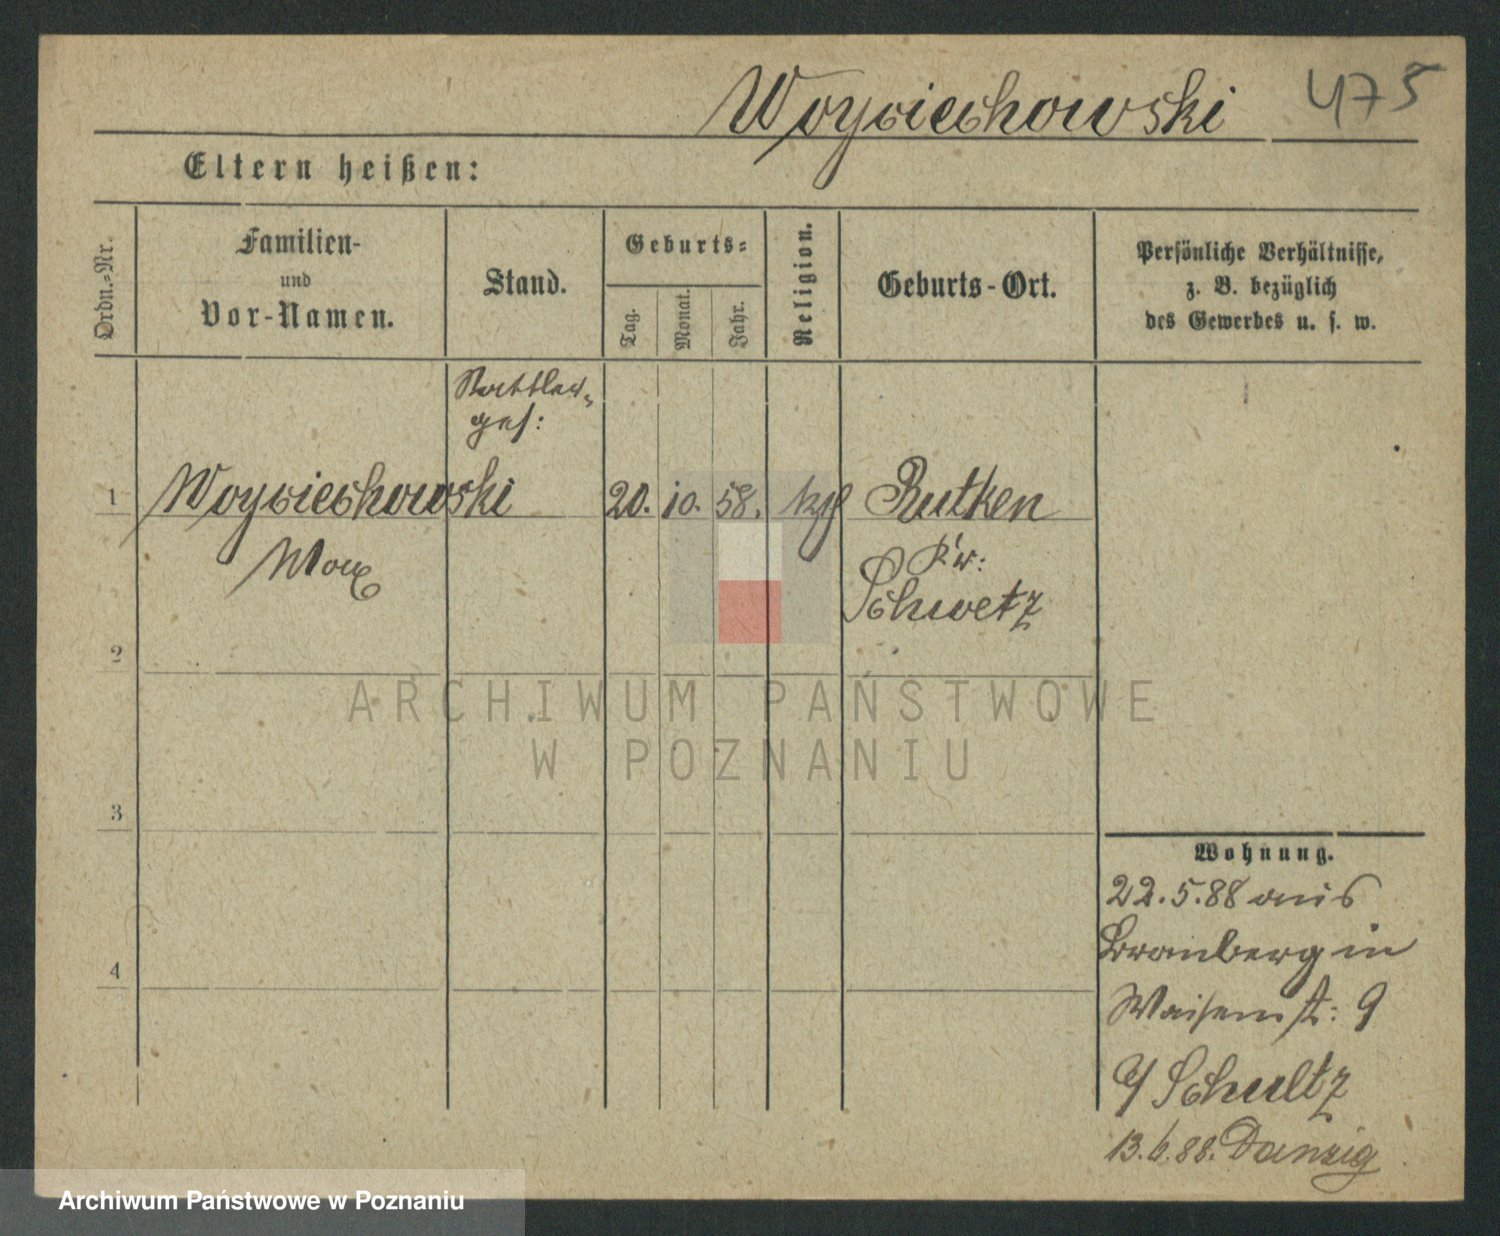 Woyciechowski 475
Eltern heißen:
Ordn.-Nr.
Familien-
und
Vor-Namen.
Stand.
Geburts-
Tag.
Monat.
Jahr.
Religion.
Geburts-Ort.
Persönliche Verhältnisse,
z. B. bezüglich
des Gewerbes u. s. w.
Sattler-
ges:
1 Woyciechowski 20. 10. 58. kth Rutken
Max Kr:
Schwetz
2
3
4
Wohnung.
22.5.88 aus
Bromberg in
Waisenst: 9
b/ Schultz
13.6.88. Danzig
ARCHIWUM PAŃSTWOWE
W POZNANIU
Archiwum Państwowe w Poznaniu